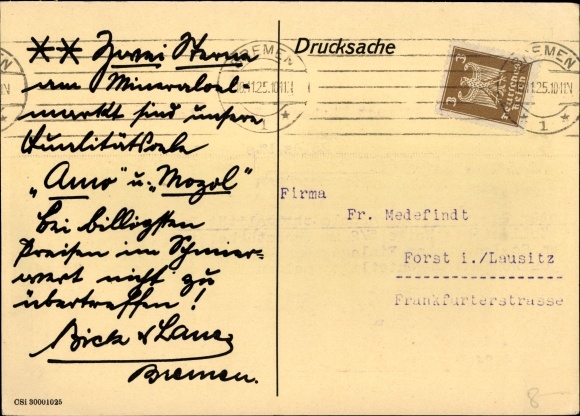 ** Zwei Sterne
am Mineraloel-
markt sind unsere
Qualitätsoele
„Amo" u. „Mozol"
bei billigsten
Preisen im Schmier-
wert nicht zu
übertreffen!
Bick & Lane
Bremen.
CSi 30001025
Drucksache
BREMEN
1
BREMEN
1.25.10-11N
1
3
Deutsches Reich
3
Firma
Fr. Medefindt
Forst i./Lausitz
Frankfurterstrasse
8